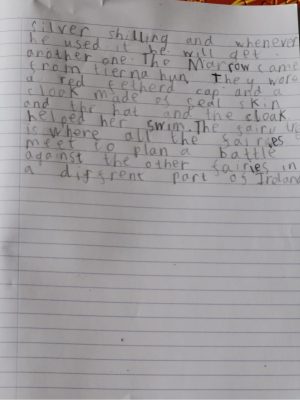 silver shilling and whenever
he used it he will get
another one. The Marrow came
from tierna hun, They wore
a red fetherd cap and a
cloak made of seal skin
and the hat and the cloak
helped her swim. The fairy
is where all the fairges
meet to plan a battle
against the other fairies in
a diffrent part of Irelan